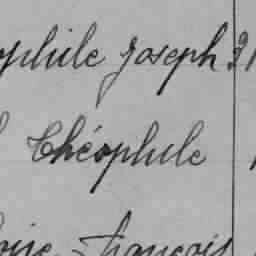 ophile Joseph 21
Théophile
oise François